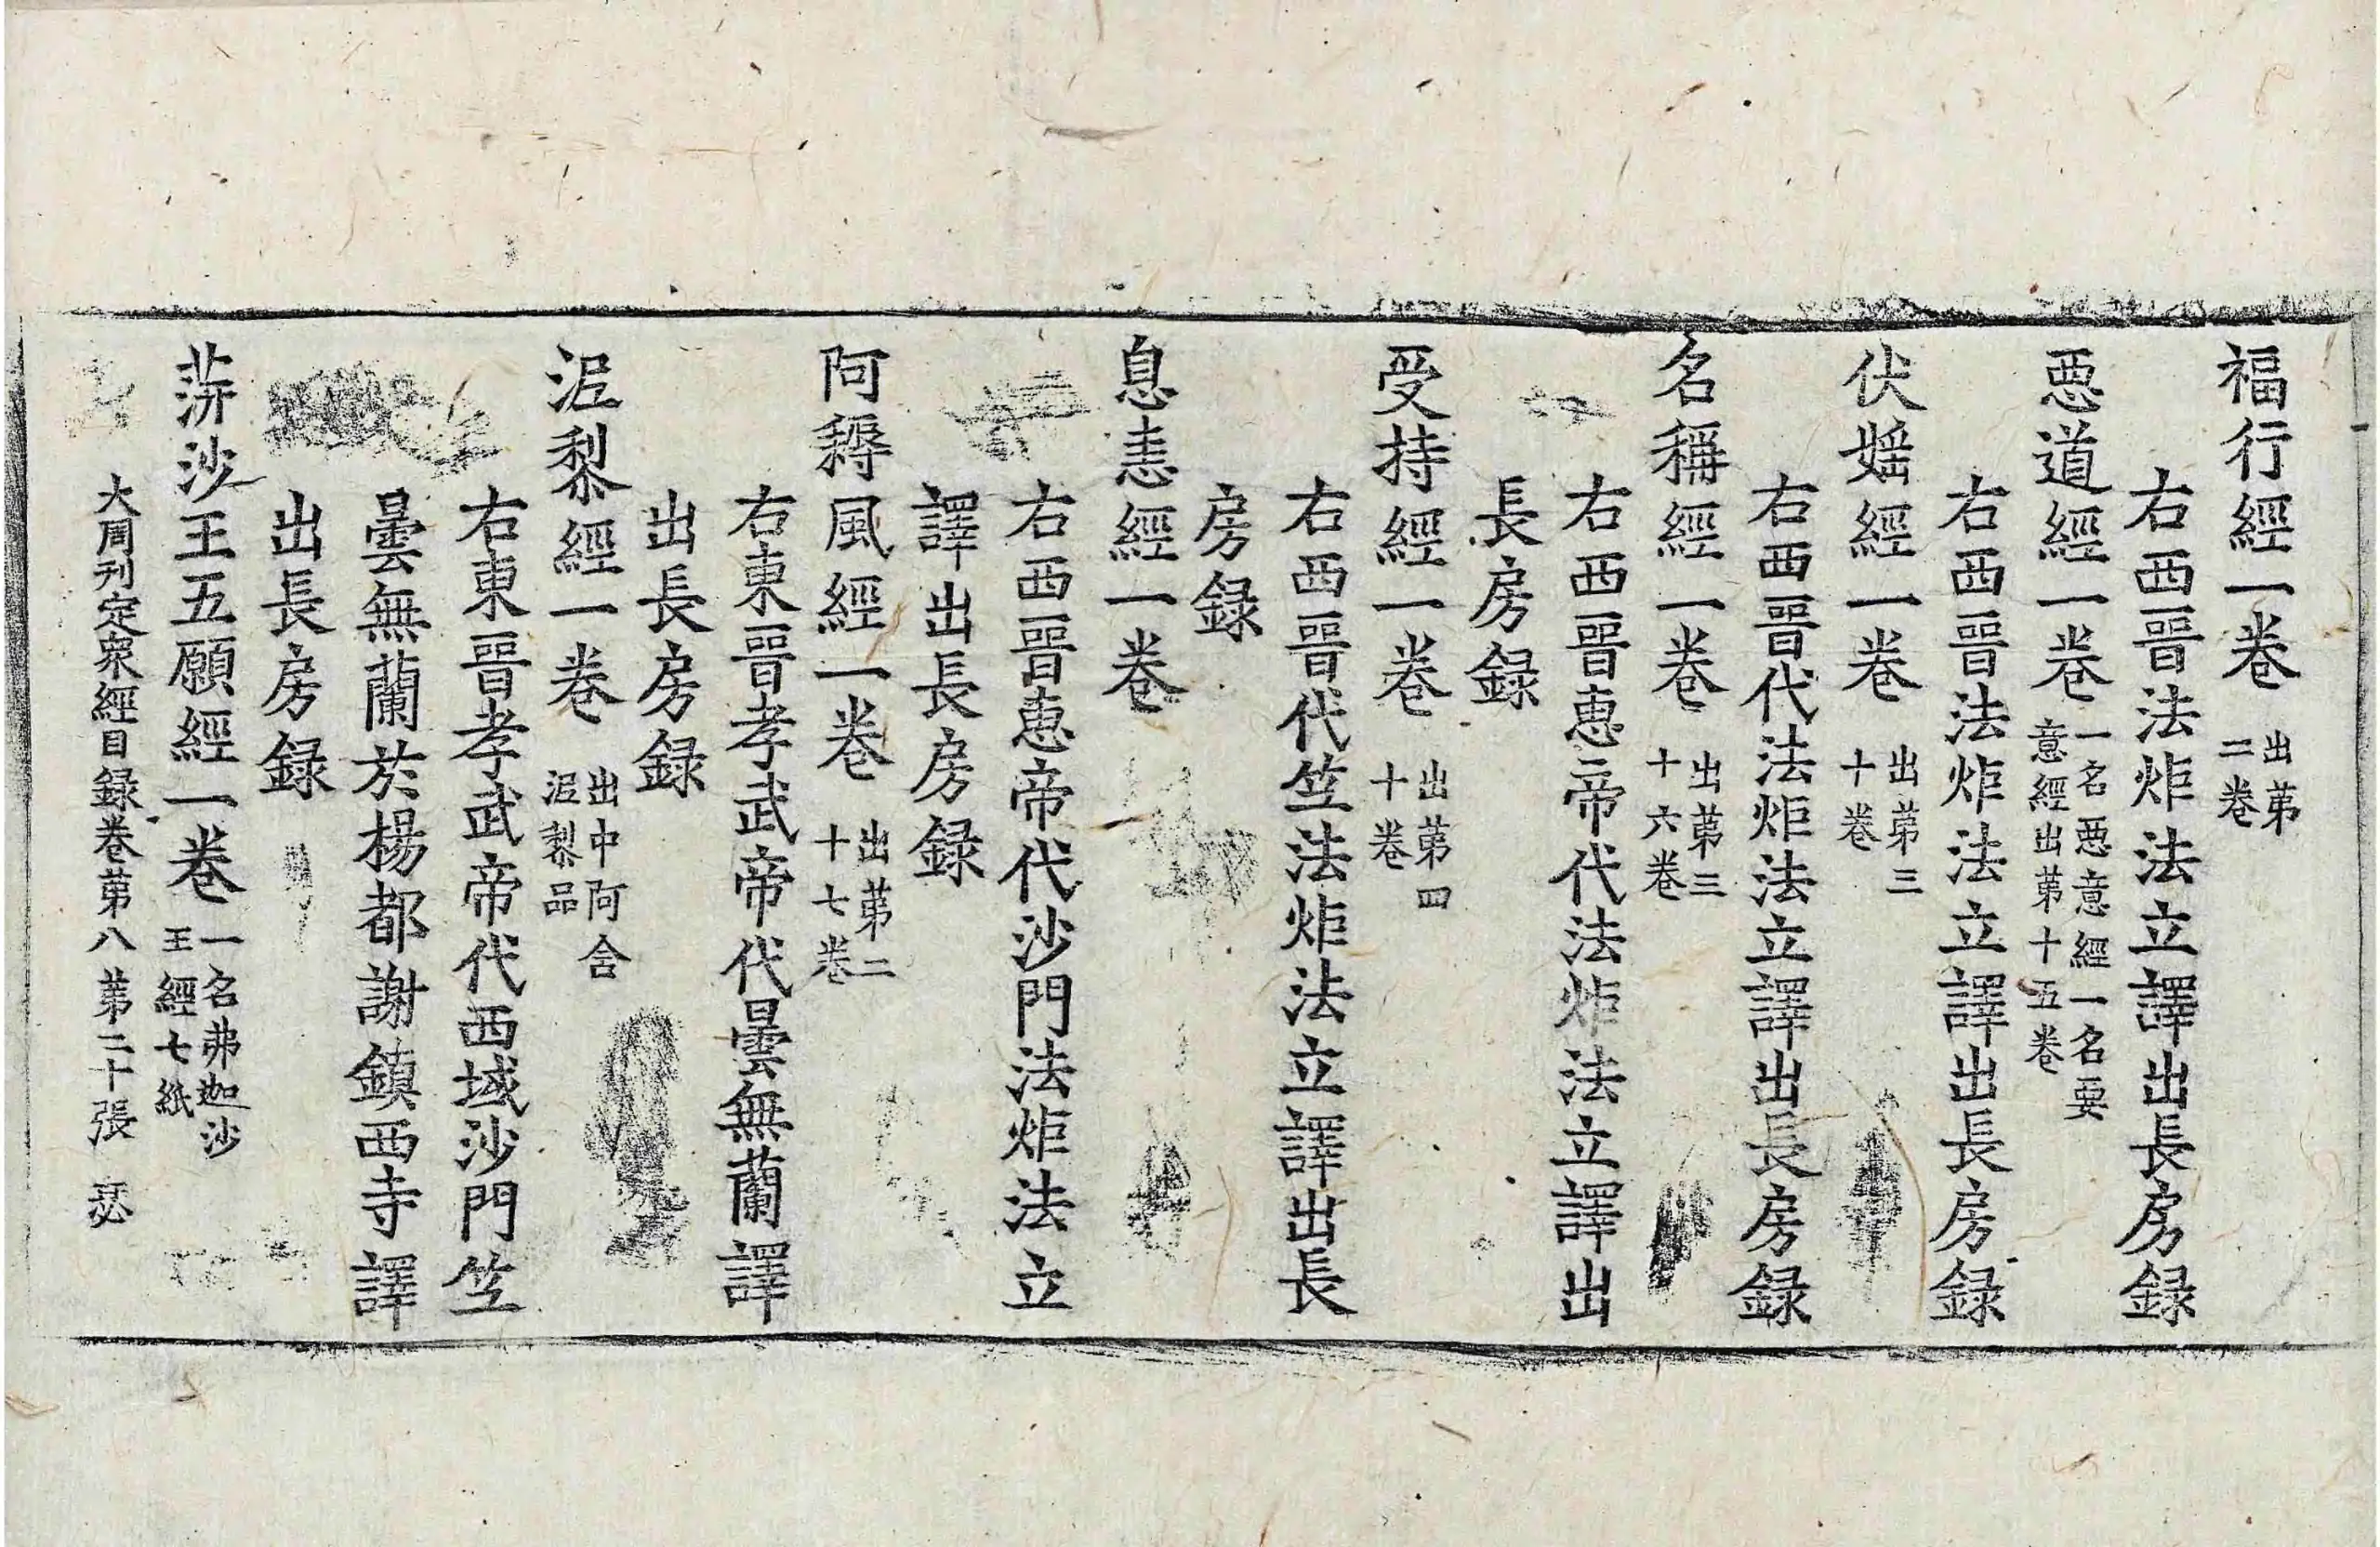 福行經一卷 出苐二卷
右西晉法炬法立譯出長房録
惡道經一卷 一名惡意經一名要意經出苐十五卷
右西晉法炬法立譯出長房録
伏婬經一卷 出苐三十卷
右西晉代法炬法立譯出長房録
名稱經一卷 出苐三十六卷
右西晉惠帝代法炬法立譯出
長房録
受持經一卷 出苐四十卷
右西晉代竺法炬法立譯出長
房録
息恚經一卷
右西晉惠帝代沙門法炬法立
譯出長房録
阿耨風經一卷 出苐二十七卷
右東晉孝武帝代曇無蘭譯
出長房録
泥犁經一卷 出中阿含泥犁品
右東晉孝武帝代西域沙門竺
曇無蘭於楊都謝鎮西寺譯
出長房録
蓱沙王五願經一卷 一名弗迦沙王經七紙
大周刊定衆經目録卷苐八 苐二十張 瑟